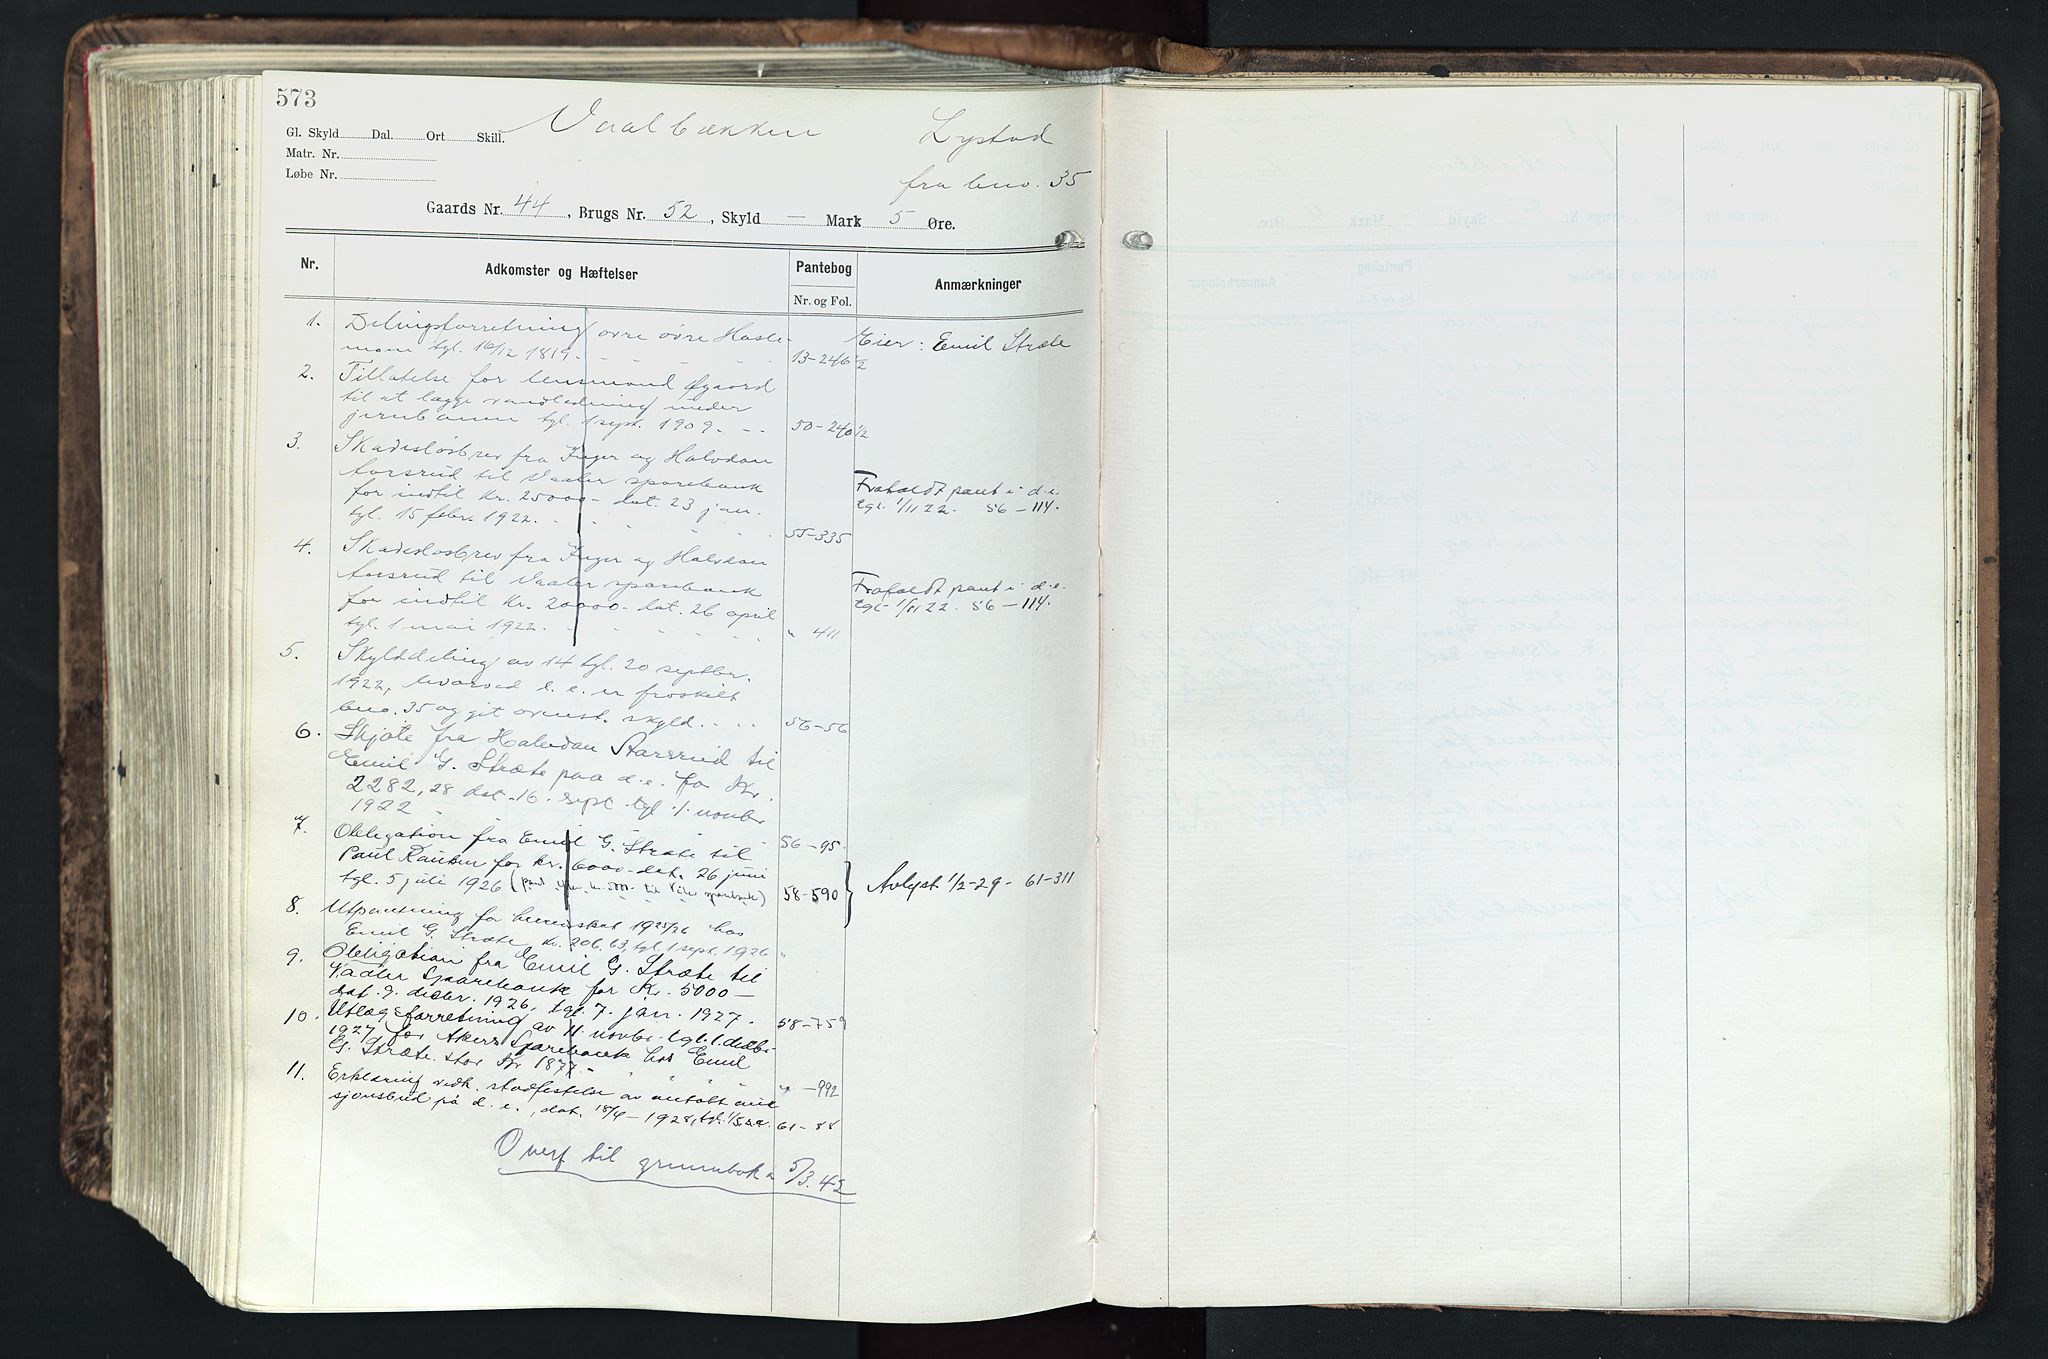 573
Vaalbækken Lystad
Gl. Skyld Dal. Ort Skill.
Matr. Nr.
Løbe Nr.
fra bno. 35
Gaards Nr. 44, Brugs Nr. 52, Skyld — Mark 5 Øre.
Nr. Adkomster og Hæftelser Pantebog Anmærkninger
Nr. og Fol.
1. Delingsforretning over øvre Hasle-
moen tgl. 16/12 1819. 13-246 1/2 Eier: Emil Stræte
2. Tillatelse for lensmand Øgaard
til at lægge vandledning under
jernbanen tgl. 1 sept. 1909. 50-240 1/2
3. Skadesløsbrev fra Inger og Halvdan
Aarsrud til Vaaler sparebank
for indtil kr. 25000- dat. 23 jan.
tgl. 15 febr. 1922. 55-335
Frafaldt pant i d.e.
tgl. 1/11 22. 56-114.
4. Skadesløsbrev fra Inger og Halvdan
Aarsrud til Vaaler sparebank
for indtil kr. 20000- dat. 26 april
tgl. 1 mai 1922. " 411
Frafaldt pant i d.e.
tgl. 1/11 22. 56-114.
5. Skylddeling av 14 tgl. 20 septbr.
1922, hvorved d. e. er fraskilt
bno. 35 og git ovenst. skyld. 56-56
6. Skjøte fra Halvdan Aarsrud til
Emil G. Stræte paa d.e. for Kr.
2282,28 dat. 16. sept. tgl. 1. novbr
1922 56-95.
7. Obligation fra Emil G. Stræte til
Paul for kr. 6000- dat. 26 juni
tgl. 5 juli 1926 til sparebank) 58-590 } Avlyst 1/2-29- 61-311
8. Utpantning for 1925/26 hos
Emil G. Stræte, kr. 206.63, tgl. 1 sept. 1926 "
9. Obligation fra Emil G. Stræte til
Vaaler Sparebank for Kr. 5000-
dat. 9. decbr. 1926, tgl. 7. jan. 1927. 58-759
10. Utlægsforretning av 11. novbr. tgl. 1. decbr.
1927 for Akers Sparebank hos Emil
G. Stræte. stor Kr 1877.- " -992
11. Erklæring vedk. stadfestelse av
på d. e., dat. 18/4-1928, 61-88
Overf til grunnbok 5/3.42